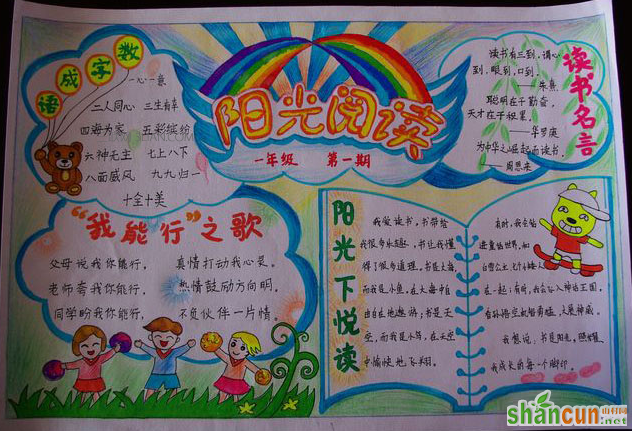 阳光阅读
一年级 第一期
数字成语
一心一意
二人同心 三生有幸
四海为家 五彩缤纷
六神无主 七上八下
八面威风 九九归一
十全十美
读书名言
读书有三到,谓心
到,眼到,口到。
——朱熹
聪明在于勤奋,
天才在于积累。
——华罗庚
为中华之崛起而读书。
——周恩来
“我能行”之歌
父母说我你能行, 真情打动我心灵。
老师夸我你能行, 热情鼓励方向明。
同学盼我你能行, 不负伙伴一片情。
阳光下悦读
我爱读书,书带给
我很多乐趣,书让我懂
得了很多道理。书是大海,
而我是小鱼,在大海中自
由自在地遨游;书是天
空,而我是小鸟,在天空
中愉快地飞翔。
有时,我会陷
进童话世界,和
白雪公主、七个小矮人
在一起;有时,我会陷入神话王国,
看孙悟空机智勇猛,大显神威。
我想说,书是阳光,照耀着
我成长的每一个脚印。
shancun
山村网
.net